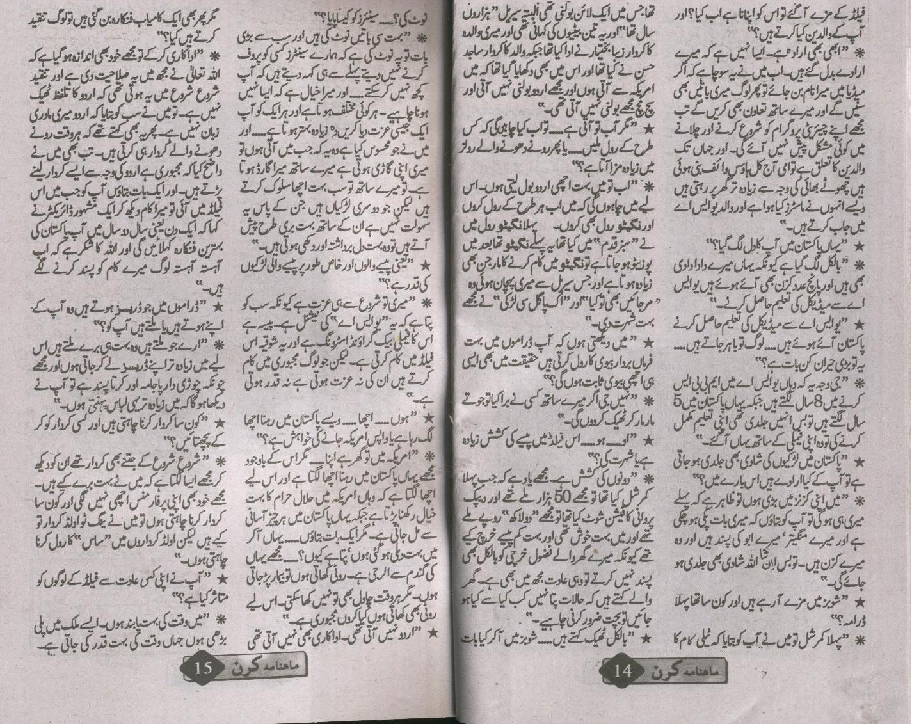 فیلڈ کے مزے آ گئے تو اس کو اپنانا ہے اب کیا؟ اور
آپ کے والدین کیا کرتے ہیں؟"
* "ابھی بھی ارادہ ہے۔ ایسا نہیں ہے کہ میرے
ارادے بدل گئے ہیں۔ اب میں نے یہ سوچا ہے کہ اگر
میڈیا میں میرا نام بن جائے تو پھر لوگ میری باتیں بھی
سنیں گے اور میرے ساتھ تعاون بھی کریں گے تب
مجھے اپنے چیریٹی پروگرام کو شروع کرنے اور چلانے
میں کوئی مشکل پیش نہیں آئے گی۔ اور جہاں تک
والدین کا تعلق ہے تو امی آج کل ہاؤس وائف بنی ہوئی
ہیں چھوٹے بھائی کی وجہ سے زیادہ تر گھر پر رہتی ہیں
ویسے انہوں نے ماسٹرز کیا ہوا ہے اور والد یو ایس اے
میں جاب کرتے ہیں۔"
★ "یہاں پاکستان میں آپ کا دل لگ گیا؟"
* "بالکل لگ گیا ہے کیونکہ یہاں میرے دادا دادی
بھی ہیں اور پانچ عدد کزن بھی آئے ہوئے ہیں یو ایس
اے سے میڈیکل کی تعلیم حاصل کرنے۔"
★ "یو ایس اے سے میڈیکل کی تعلیم حاصل کرنے
پاکستان آئے ہوئے ہیں.... لوگ تو باہر جاتے ہیں....
یہ تو بڑی حیران کن بات ہے؟"
* "جی وجہ یہ کہ وہاں یو ایس اے میں ایم بی بی ایس
کرنے میں 8 سال لگتے ہیں جبکہ یہاں پاکستان میں 5
سال لگتے ہیں تو بس انہیں جلدی تھی اپنی تعلیم مکمل
کرنے کی تو وہ اپنی فیملی کے ساتھ یہاں آ گئے۔"
★ "پاکستان میں لڑکیوں کی شادی بھی جلدی ہو جاتی
ہے تو آپ کے کیا ارادے ہیں اس بارے میں؟"
* "میں اپنی کزنز میں بڑی ہوں تو ظاہر ہے کہ پہلے
میری ہی ہو گی تو آپ کو بتاؤں کہ میری بات پکی ہو چکی
ہے اور میرے منگیتر میرے ابو کی پسند ہیں اور وہ
میرے کزن ہیں۔ تو بس ان شاء اللہ شادی بھی جلدی ہو
جائے گی۔"
★ "شوبز میں مزے آ رہے ہیں اور کون سا تھا پہلا
ڈرامہ؟"
* "پہلا کمرشل تو میں نے آپ کو بتایا کہ ٹیلی کام کا
تھا جس میں ایک لائن بولی تھی البتہ سیریل "ہزاروں
سال تھا" اور یہ تین بیٹیوں کی کہانی تھی اور میری والدہ
کا کردار زیبا بختیار نے ادا کیا تھا جبکہ والد کا کردار ساجد
حسن نے کیا تھا اور اس میں بھی دکھایا گیا تھا کہ میں
امریکہ سے آئی ہوں اور مجھے اردو بولنی نہیں آتی اور
سچ مچ مجھے بولنی نہیں آتی تھی۔"
★ "مگر آپ تو آتی ہے.... تو اب کیا چاہیں گی کہ کس
طرح کے رول ملیں.... یا پھر رونے دھونے والے رولز
میں زیادہ مزا آتا ہے؟"
* "اب تو میں بہت اچھی اردو بول لیتی ہوں۔ اس
لیے میں چاہوں گی کہ میں اب ہر طرح کے رول کروں
نگیٹو رول بھی کروں۔ پہلا نگیٹو رول میں
نے "سبز قدم" میں کیا تھا یہ پہلے نگیٹو تھا بعد میں
پوزیٹو ہو جاتا ہے تو نگیٹو میں کام کرنے کا مارجن بھی
زیادہ ہوتا ہے اور جس سیریل سے میری پہچان ہوئی وہ
"مر جائیں بھی تو کیا" اور "اک پاگل سی لڑکی" نے مجھے
بہت شہرت دی۔"
★ "میں دیکھتی ہوں کہ آپ ڈراموں میں بہت
فرماں بردار بیوی کا رول کرتی ہیں حقیقت میں بھی ایسی
ہی اچھی بیوی ثابت ہوں گی؟"
* "نہیں جی اگر میرے ساتھ کسی نے برا کیا تو جوتے
مار مار کر ٹھیک کروں گی۔"
★ "او.... ہو.... اس فیلڈ میں پیسے کی کشش زیادہ
ہے یا شہرت کی؟"
* "دونوں کی کشش ہے۔ مجھے یاد ہے کہ جب پہلا
کمرشل کیا تھا تو مجھے 50 ہزار ملے تھے اور ویک
کا فیشن شوٹ کیا تھا تو مجھے "دو لاکھ" روپے ملے
تھے۔ میں بہت خوش تھی اور بہت کم پیسے خرچ کیے
تھے کیونکہ میرے گھر والے فضول خرچی کو بالکل بھی
پسند نہیں کرتے تو یہی عادت مجھ میں بھی ہے۔ گھر
والے کہتے ہیں کہ حالات پتا نہیں کب کیا سے کیا ہو
جائیں تو بچت ضرور کرنی چاہیے۔"
★ "بالکل ٹھیک کہتے ہیں.... شوبز میں آ کر کیا بات
ماہنامہ کرن 14
نوٹ کی؟.... سینئرز کو کیسا پایا؟"
* "بہت سی باتیں نوٹ کی ہیں اور سب سے بڑی
بات تو یہ نوٹ کی ہے کہ ہمارے سینئرز کسی کو پروف
کرنے نہیں دیتے پہلے سے ہی کہہ دیتے ہیں کہ آپ
کچھ نہیں کر سکتے.... اور میرا خیال ہے کہ ایسا نہیں
ہونا چاہیے۔ ہر کوئی مختلف ہوتا ہے اور ہر ایک کو آپ
ایک جیسی عزت دیا کریں تو زیادہ بہتر ہوتا ہے.... اور
میں نے جو محسوس کیا ہے وہ یہ کہ جب میں آتی ہوں تو
میری اپنی گاڑی ہوتی ہے میرے ساتھ میرا گارڈ ہوتا
ہے۔ تو میرے ساتھ تو سب بہت اچھا سلوک کرتے
ہیں لیکن جو دوسری لڑکیاں ہیں جن کے پاس یہ
سہولت نہیں ہے ان کے ساتھ بہت بری طرح پیش
آتے ہیں تو وہ بہت دل برداشتہ اور دکھی ہوتی ہیں۔"
★ "یعنی پیسے والوں اور خاص طور پر پیسے والی لڑکیوں
کی قدر ہے؟"
* "میری تو شروع سے ہی عزت ہے کیونکہ سب کو
پتا ہے کہ یہ "یو ایس اے" کی نیشنل ہے۔ پیسہ ہے
اس کا فیملی بیک گراؤنڈ اسٹرونگ ہے اور یہ شوقیہ اس
فیلڈ میں کام کرتی ہے۔ لیکن جو لوگ مجبوری میں کام
کرتے ہیں ان کی نہ عزت ہوتی ہے نہ قدر ہوتی
ہے۔"
★ "ہوں.... اچھا.... ویسے پاکستان میں رہنا اچھا
لگ رہا ہے یا واپس امریکہ جانے کی خواہش ہے؟"
* "امریکہ میں تو گھر ہے اپنا.... مگر اس کے باوجود
مجھے یہاں پاکستان میں رہنا اچھا لگتا ہے اور اس لیے
اچھا لگتا ہے کہ وہاں امریکہ میں حلال حرام کا بہت
خیال رکھنا پڑتا ہے جبکہ یہاں پاکستان میں ہر چیز آسانی
سے مل جاتی ہے۔ مگر ایک بات بتاؤں.... یہاں آ کر
میں بہت دبلی ہو گئی ہوں پتا ہے کیوں؟.... مجھے یہاں
کی گندم سے الرجی ہے۔ روٹی کھاتی ہوں تو بیمار پڑ جاتی
ہوں۔ مگر ہر وقت چاول بھی تو نہیں کھا سکتی۔ اس لیے
روٹی بھی کھاتی ہوں کیا کروں مجبوری ہے۔"
★ "اردو نہیں آتی تھی۔ اداکاری بھی نہیں آتی تھی
مگر پھر بھی ایک کامیاب فنکارہ بن گئی ہیں تو لوگ تنقید
کرتے ہیں کیا؟"
* "اداکاری کر کے تو مجھے خود بھی اندازہ ہو گیا ہے کہ
اللہ تعالیٰ نے مجھ میں یہ صلاحیت دی ہے اور تنقید
شروع شروع میں یہ ہوتی تھی کہ اردو کا تلفظ ٹھیک
نہیں ہے۔ تو میں نے سب کو بتایا کہ اردو میری مادری
زبان نہیں ہے۔ پھر یہ بھی کہتے تھے کہ ہر وقت رونے
دھونے والے کردار ہی کرتی ہیں۔ تب بھی میں نے
واضح کیا کہ مجبوری ہے اردو کی وجہ سے ایسے کردار لینے
پڑتے ہیں۔ اور ایک بات بتاؤں آپ کو جب میں اس
فیلڈ میں آئی تو میرا کام دیکھ کر ایک مشہور ڈائریکٹر نے
کہا کہ ایک دن یعنی سال دو سال میں آپ پاکستان کی
بہترین فنکارہ کہلائیں گی اور اللہ کا شکر ہے کہ اب
آہستہ آہستہ لوگ میرے کام کو پسند کرنے لگے
ہیں۔"
★ "ڈراموں میں جو ڈریسز ہوتے ہیں وہ آپ کے
اپنے ہوتے ہیں یا ملتے ہیں آپ کو؟"
* "ارے جو ملتے ہیں وہ بہت ہی برے ملتے ہیں اس
لیے میں زیادہ تر اپنے ڈریسز لے کر جاتی ہوں اور مجھے
چونکہ چوڑی دار پاجامہ اور کرتا پسند ہے تو آپ نے
دیکھا ہو گا کہ میں زیادہ تر یہی لباس پہنتی ہوں۔"
★ "کون سا کردار کرنا چاہتی ہیں اور کسی کردار کو کر
کے پچھتائیں؟"
* "شروع شروع کے جتنے بھی کردار تھے ان کو دیکھ
کر مجھے ایسا لگتا ہے کہ میں نے بہت برے کیے ہیں۔
مجھے خود بھی اپنی پرفارمنس اچھی نہیں لگی اور کون سا
کردار کرنا چاہتی ہوں تو میں نے ینگ ٹو اولڈ کردار تو
کیے ہیں لیکن اولڈ کرداروں میں "ساس" کا رول کرنا
چاہتی ہوں۔"
★ "آپ نے اپنی کس عادت سے فیلڈ کے لوگوں کو
متاثر کیا ہے؟"
* "میں وقت کی بہت پابند ہوں۔ ایسے ملک میں پلی
بڑھی ہوں جہاں وقت کی بہت قدر کی جاتی ہے۔
ماہنامہ کرن 15